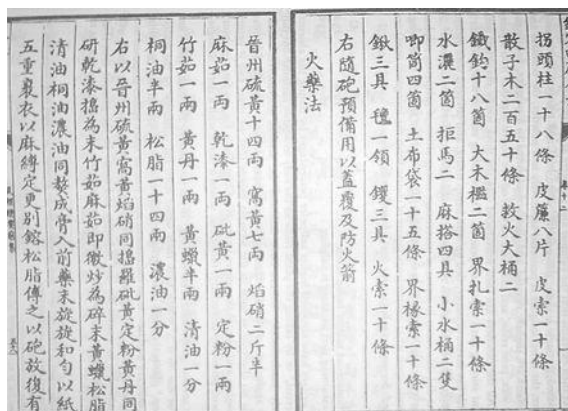 拐頭柱一十八條 皮簾八片 皮索一十條
散子木二百五十條 救火大桶二
鐵鈎十八箇 大木檻二箇 界扎索一十條
水濃二箇 拒馬二 麻搭四具 小水桶二隻
唧筒四箇 土布袋一十五條 界椽索一十條
鍬三具 氊一領 钁三具 火索一十條
右隨砲預備用以蓋覆及防火箭
火藥法
晉州硫黃十四兩 窩黃七兩 焰硝二斤半
麻茹一兩 乾漆一兩 砒黃一兩 定粉一兩
竹茹一兩 黃丹一兩 黃蠟半兩 清油一分
桐油半兩 松脂一十四兩 濃油一分
右以晉州硫黃窩黃焰硝同擣羅砒黃定粉黃丹同
研乾漆搗為末竹茹麻茹即微炒為碎末黃蠟松脂
清油桐油濃油同熬成膏入前藥末旋旋和勻以紙
五重裹衣以麻縛定更別鎔松脂傅之以砲放復有